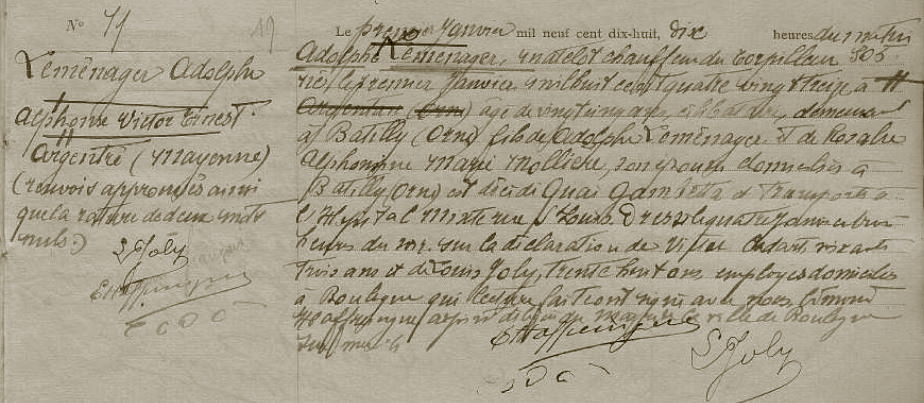 N° 11
19
Leménager Adolphe
Alphonse Victor Ernest.
H
Argentré (Mayenne)
(renvois approuvés ainsi
que la rature de deux mots
nuls.)
S Joly
Le premier Janvier mil neuf cent dix-huit, dix heures du matin
Adolphe Leménager, matelot chauffeur du torpilleur 303
né le premier Janvier mil huit cent quatre vingt treize à H
Argentan (Orne) âgé de vingt cinq ans, célibataire, demeurant
à Batilly (Orne) fils de Adolphe Leménager et de Rosalie
Alphonsine Marie Mollière, son épouse domiciliés à
Batilly (Orne) est décédé Quai Gambetta et transporté à
l'Hôpital St Louis. Dressé le quatre Janvier
heures du soir sur la déclaration de Victor soixante
trois ans et de Louis Joly, trente huit ans employés domiciliés
à Boulogne qui lecture faite ont signé avec nous Edmond
adjoint délégué du Maire de la ville de Boulogne
sur mer
S Joly